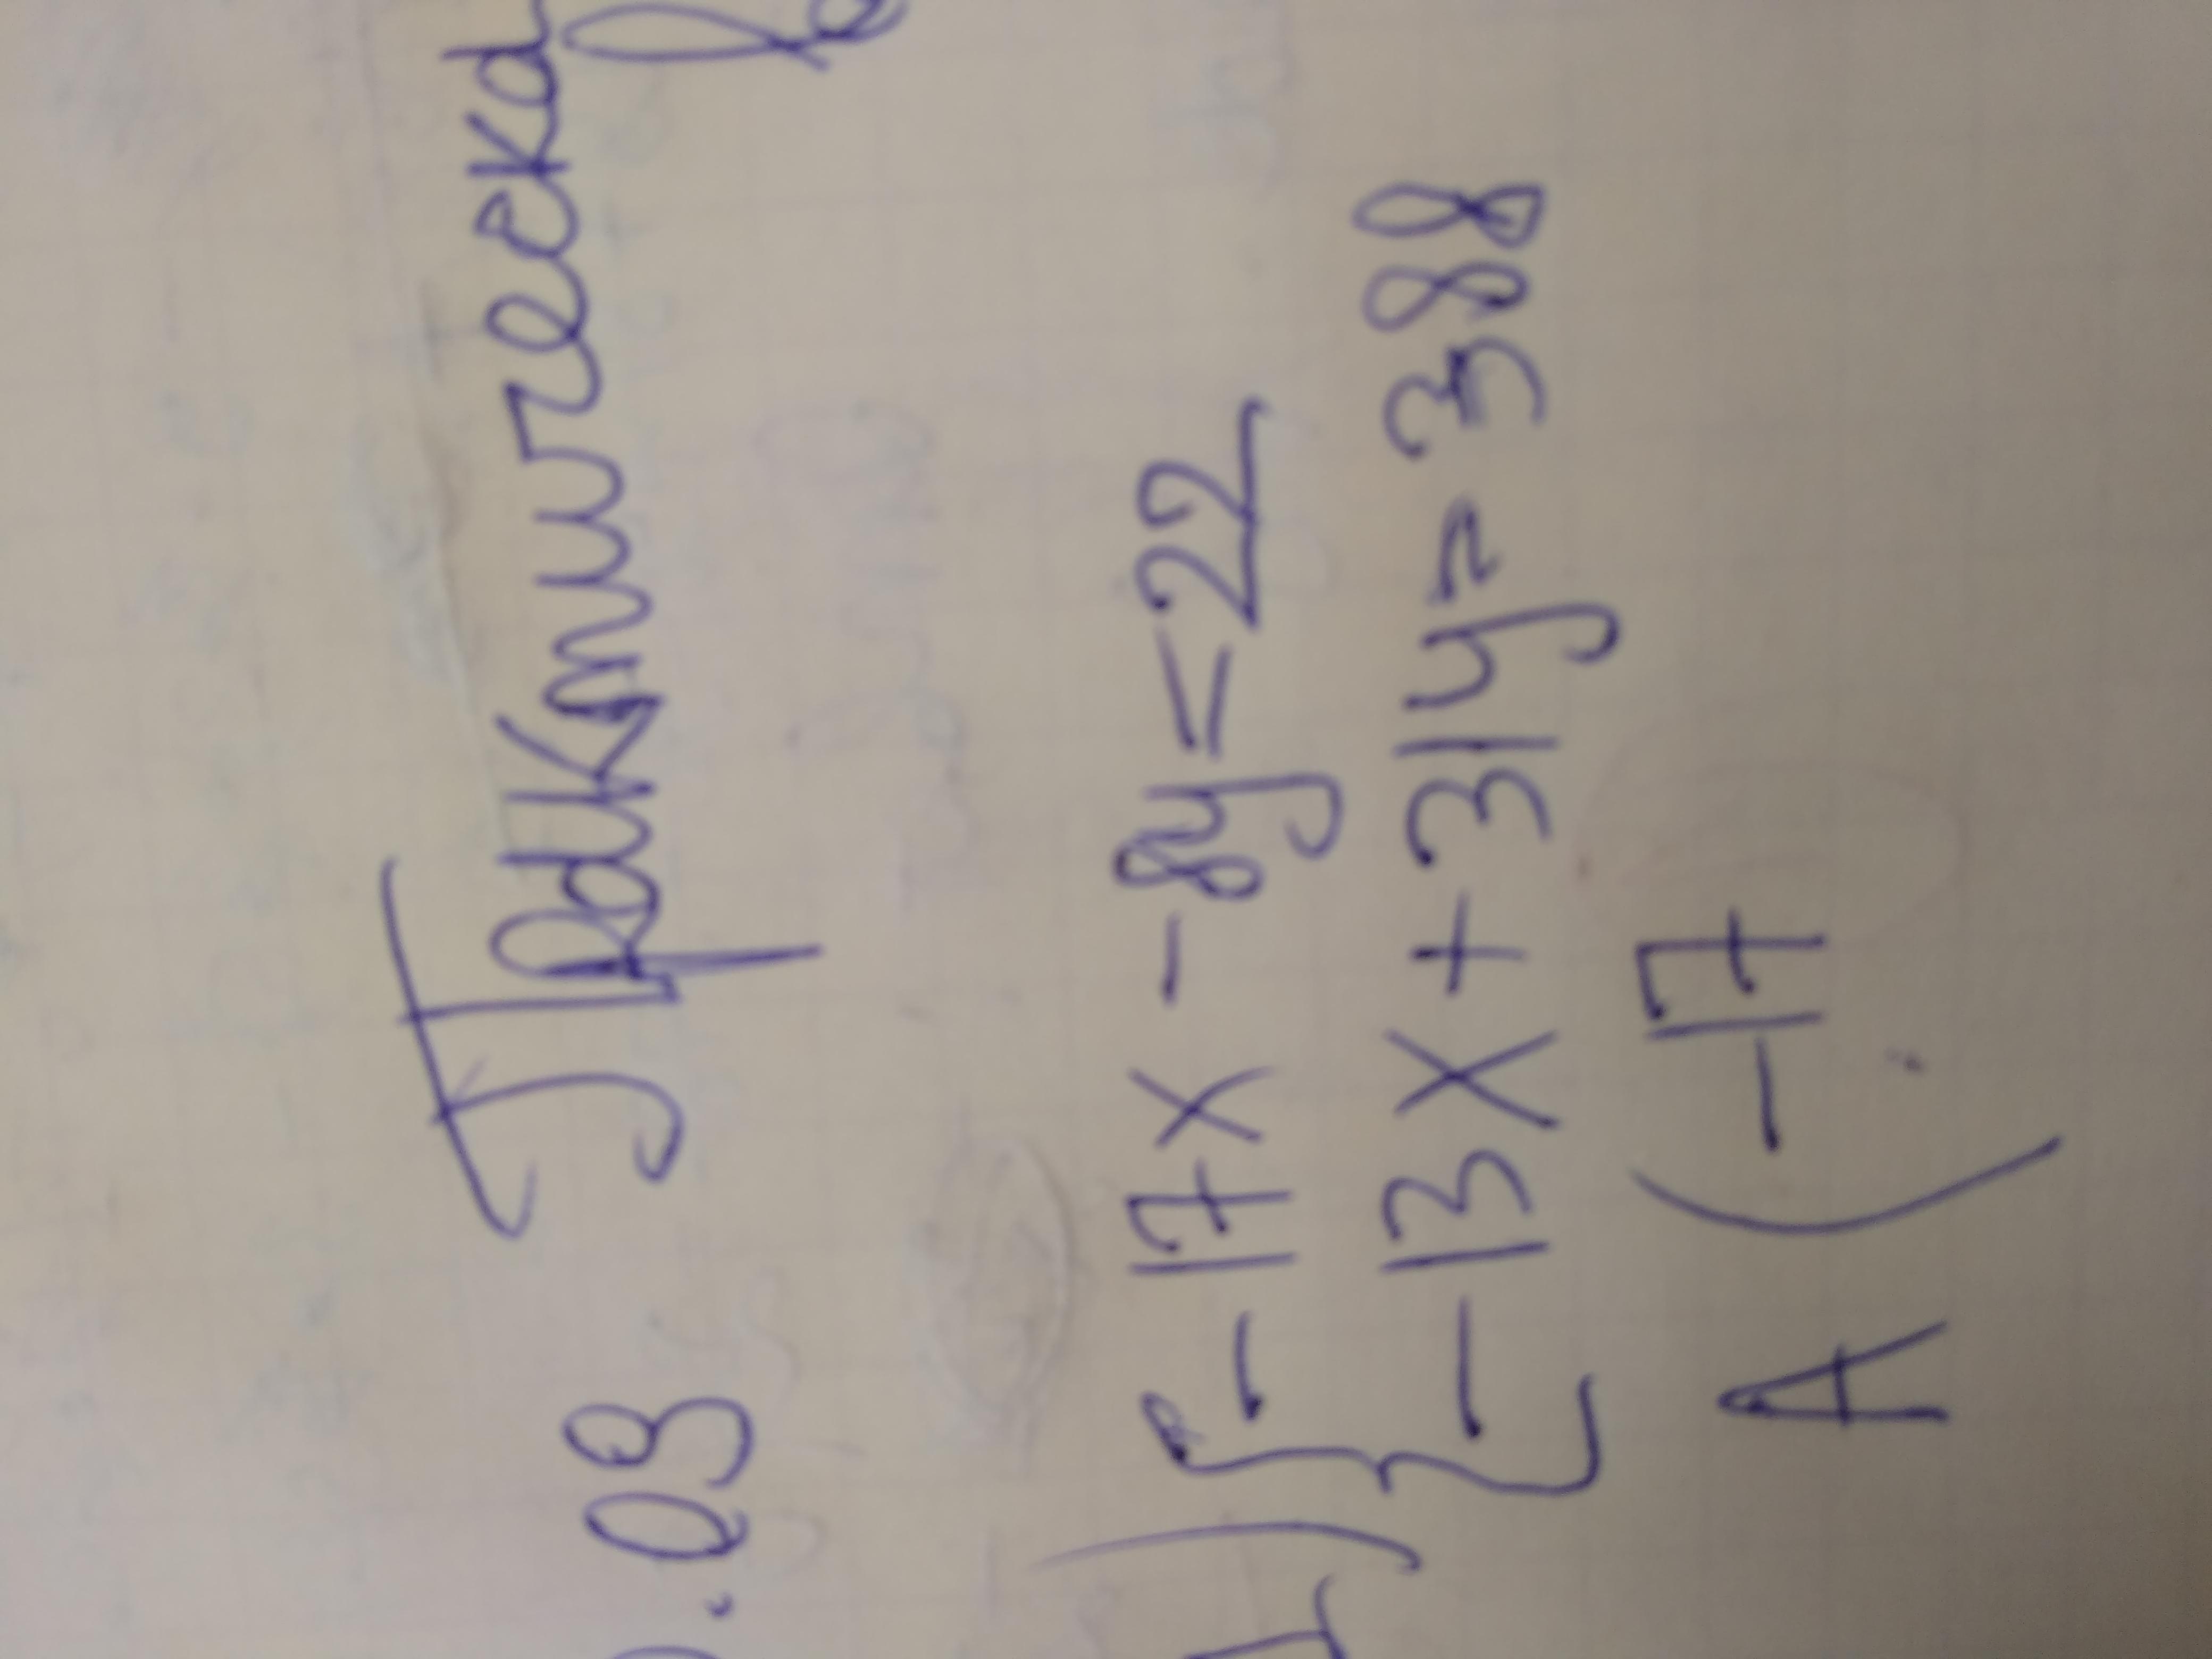 .03 Практическа
1) { -17x - 8y = 22
-13x + 31y = 388
A ( -17